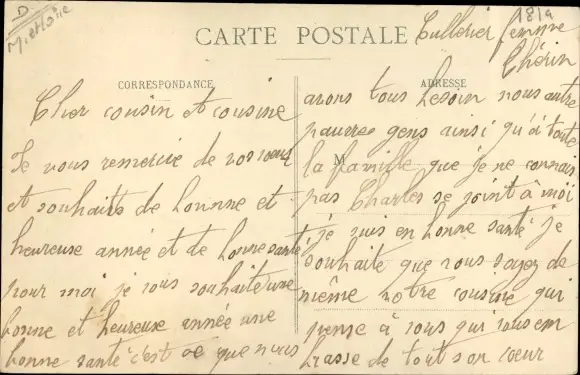 D.
CARTE POSTALE
CORRESPONDANCE
Cher cousin et cousine
Je vous remercie de vos voeux
et souhaits de bonnne et
heureuse année et de bonne santé
pour moi je vous souhaite une
bonne et heureuse année une
bonne santé c'est ce que nous
Tullerier femme
Chérin
ADRESSE
avons tous besoin nous autre
pauvres gens ainsi qu'à toute
la famille que je ne connais
M
pas Charles se joint à moi
je suis en bonne santé je
souhaite que vous soyez de
même votre cousine qui
pense à vous qui vous em
brasse de tout son coeur